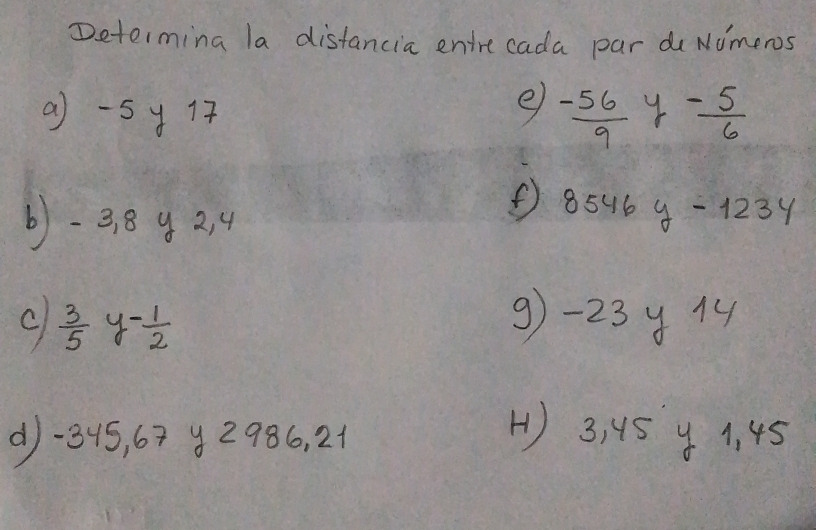 Determina la distancia entre cada par de Números
a) -5 y 17
b) - 3,8 y 2,4
c) 3/5 y -1/2
d) -345,67 y 2986,21
e) -56/9 y -5/6
f) 8546 y -1234
g) -23 y 14
H) 3,45 y 1,45